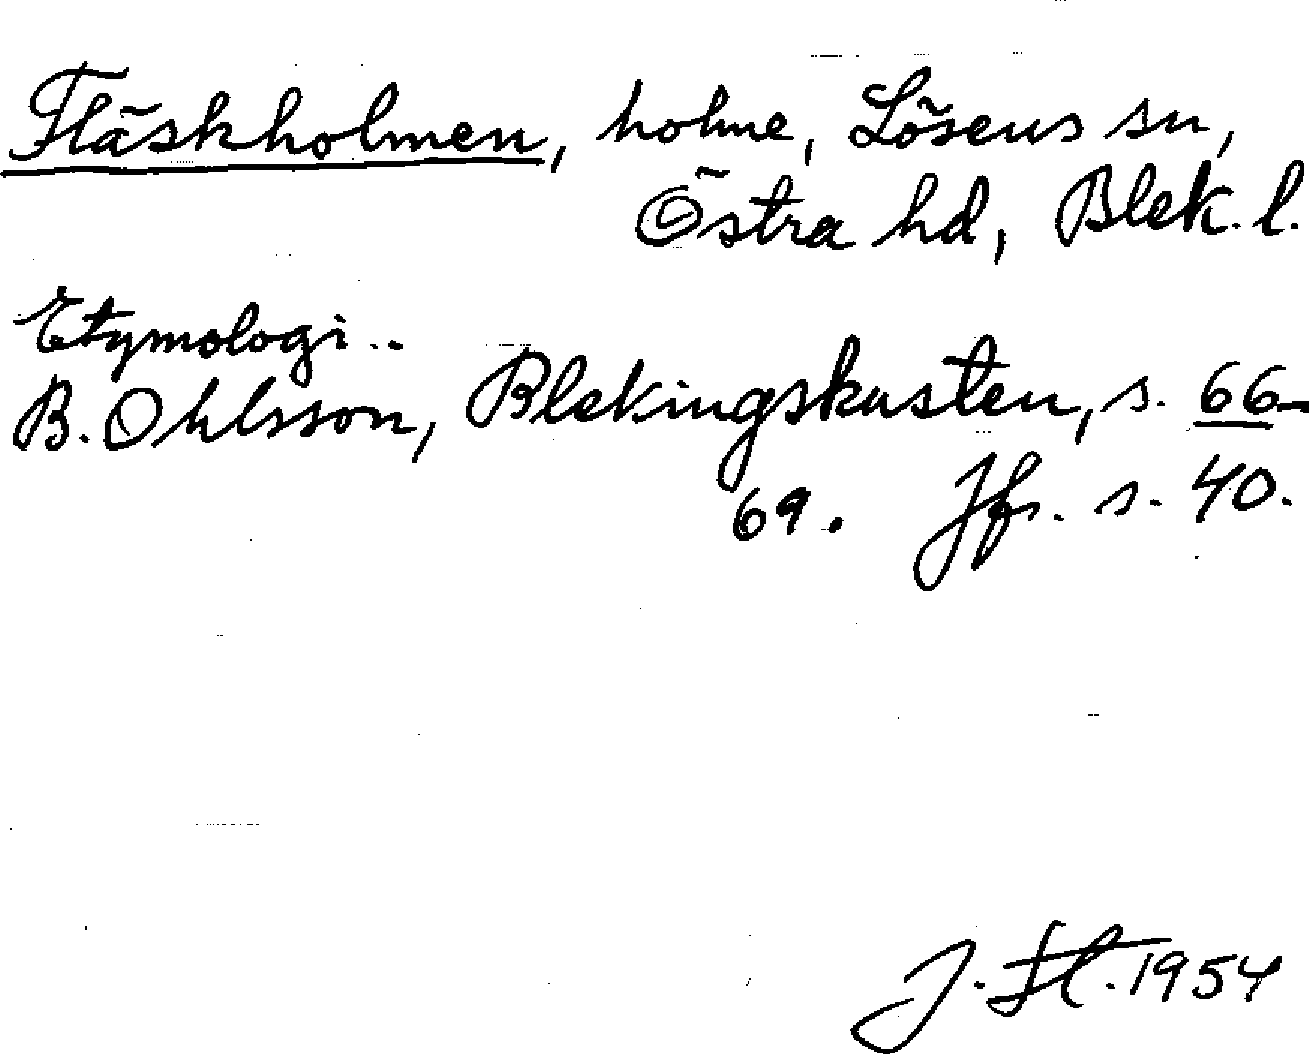 Fläskholmen, holme, Lösens sn,
Östra hd, Blek. l.
Etymologi..
B. Ohlsson, Blekingskusten, s. 66-
69. Jfr. s. 40.
J. 1954